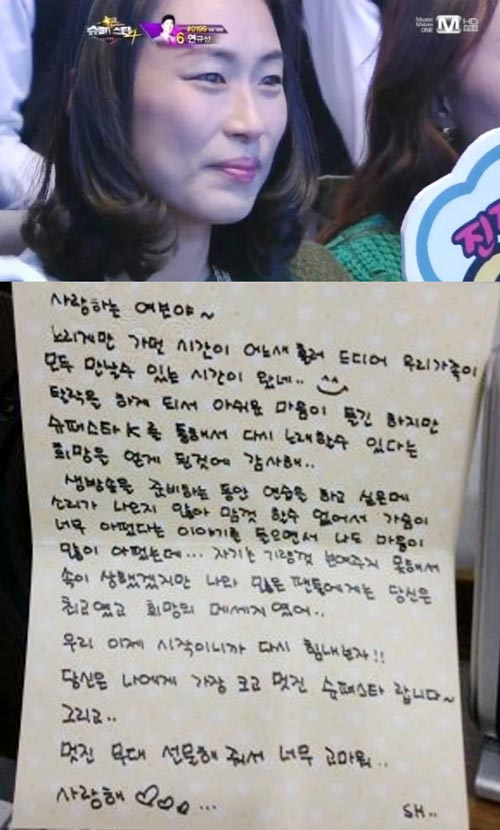 슈퍼스타K4
#0199
6 연규성
Music Makes ONE M HD
진
사랑하는 여분야~
느리게만 가던 시간이 어느새 흘러 드디어 우리가족이
모두 만날수 있는 시간이 왔네..
탈락을 하게 되서 아쉬운 마음이 들긴 하지만
슈퍼스타K를 통해서 다시 노래할수 있다는
희망을 얻게 된것에 감사해..
생방송을 준비하는 동안 연습을 하고 싶은데
소리가 나오지 않아 맘껏 할수 없어서 가슴이
너무 아팠다는 이야기를 들으면서 나도 마음이
많이 아팠는데... 자기는 기량껏 보여주지 못해서
속이 상했겠지만 나와 많은 팬들에게는 당신은
최고였고 희망의 메세지 였어..
우리 이제 시작이니까 다시 힘내보자!!
당신은 나에게 가장 크고 멋진 슈퍼스타 랍니다~
그리고..
멋진 무대 선물해 줘서 너무 고마워..
사랑해 ♡♡♡...
SH..